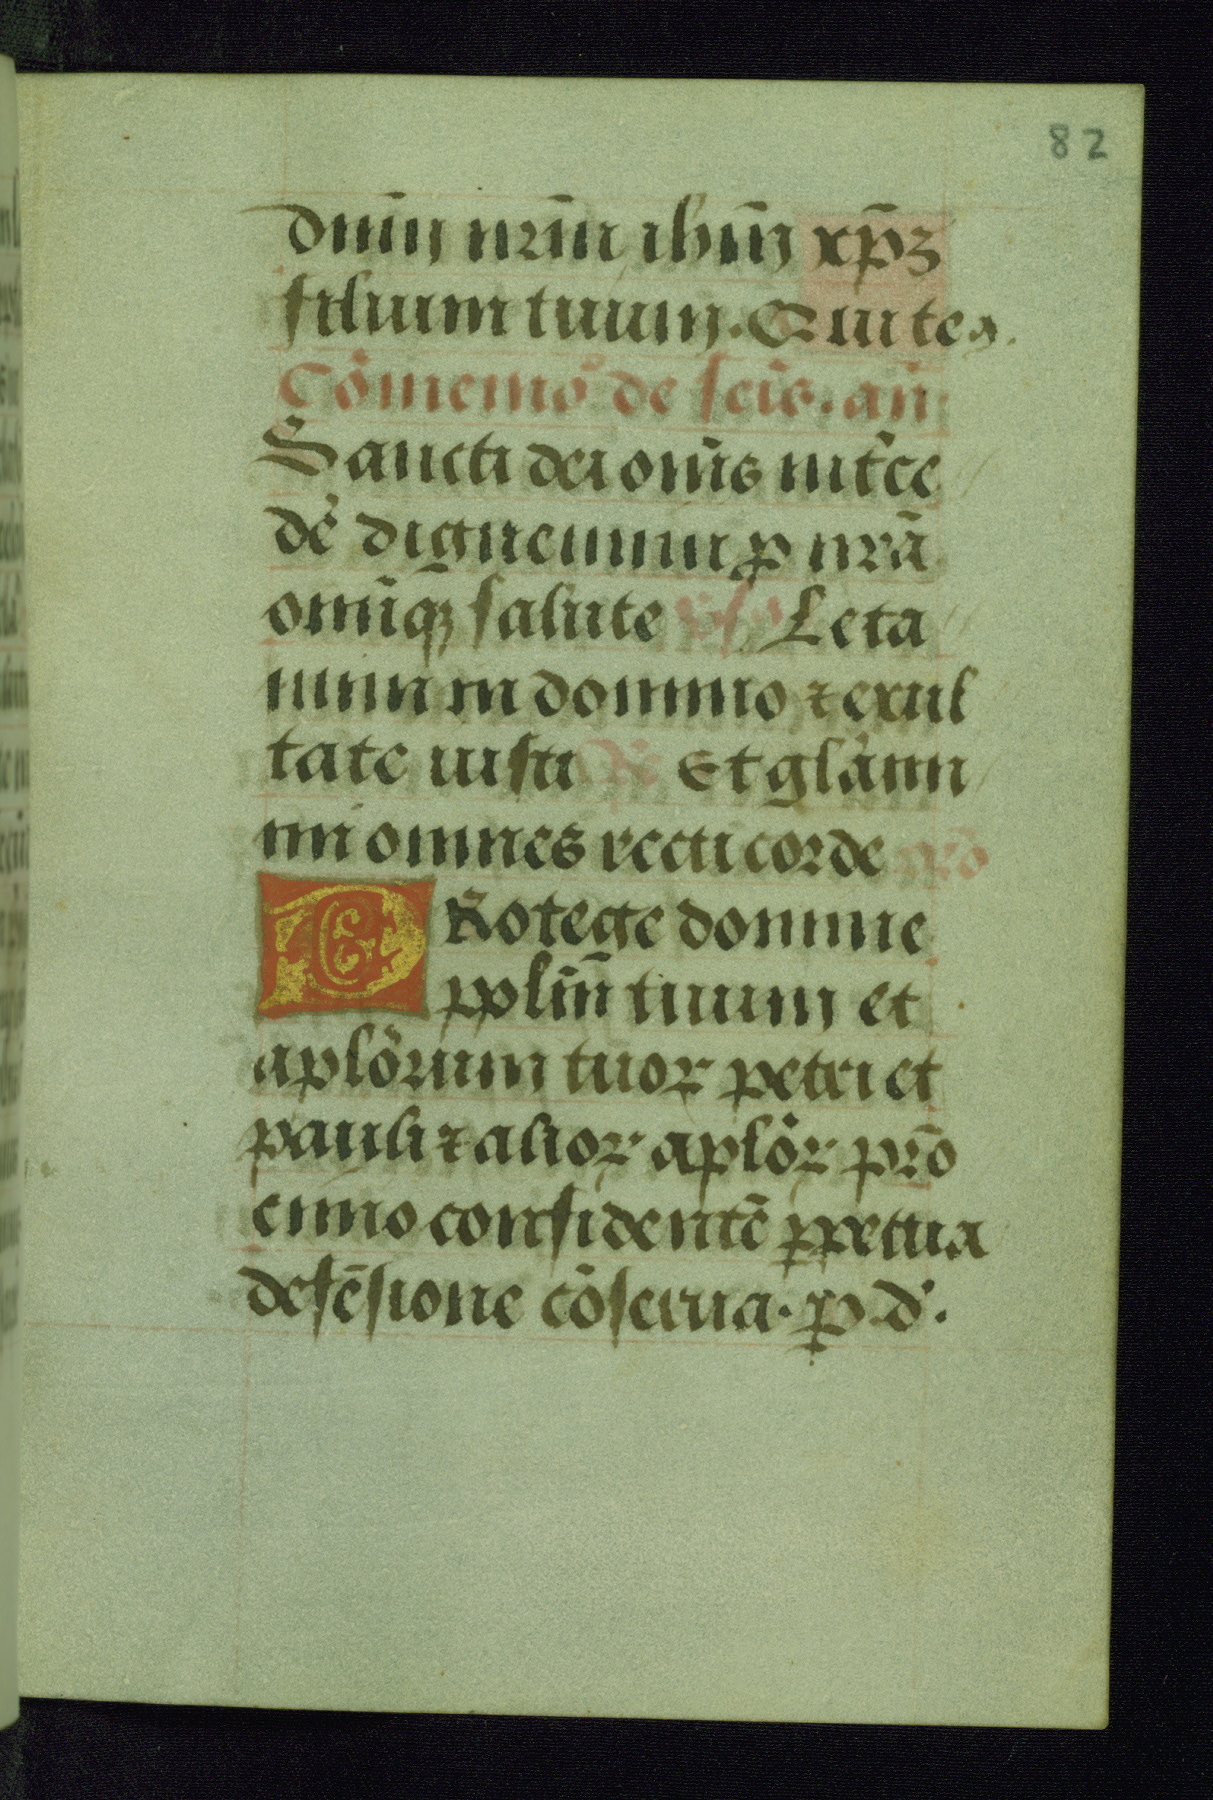 82
dnm̄ nrm̄ ihm̄ xp̄ꝫ
filium tuum. Qui tec̄.
Cōmemo de scīs. an̄
Sancti dei om̄s int̄ce
dē dignemini ꝓ nrā
omīuqꝫ salute ꝟs Leta
mini in domino ⁊ exul
tate iusti ℟ Et glāmi
ni omnes recti corde oro
Protege domine
pplm̄ tuum et
aplōrum tuoꝝ petri et
pauli ⁊ alioꝝ aplōꝝ prō
cinio confidentē ꝑpetua
defēsione cōserua. ꝑ d.